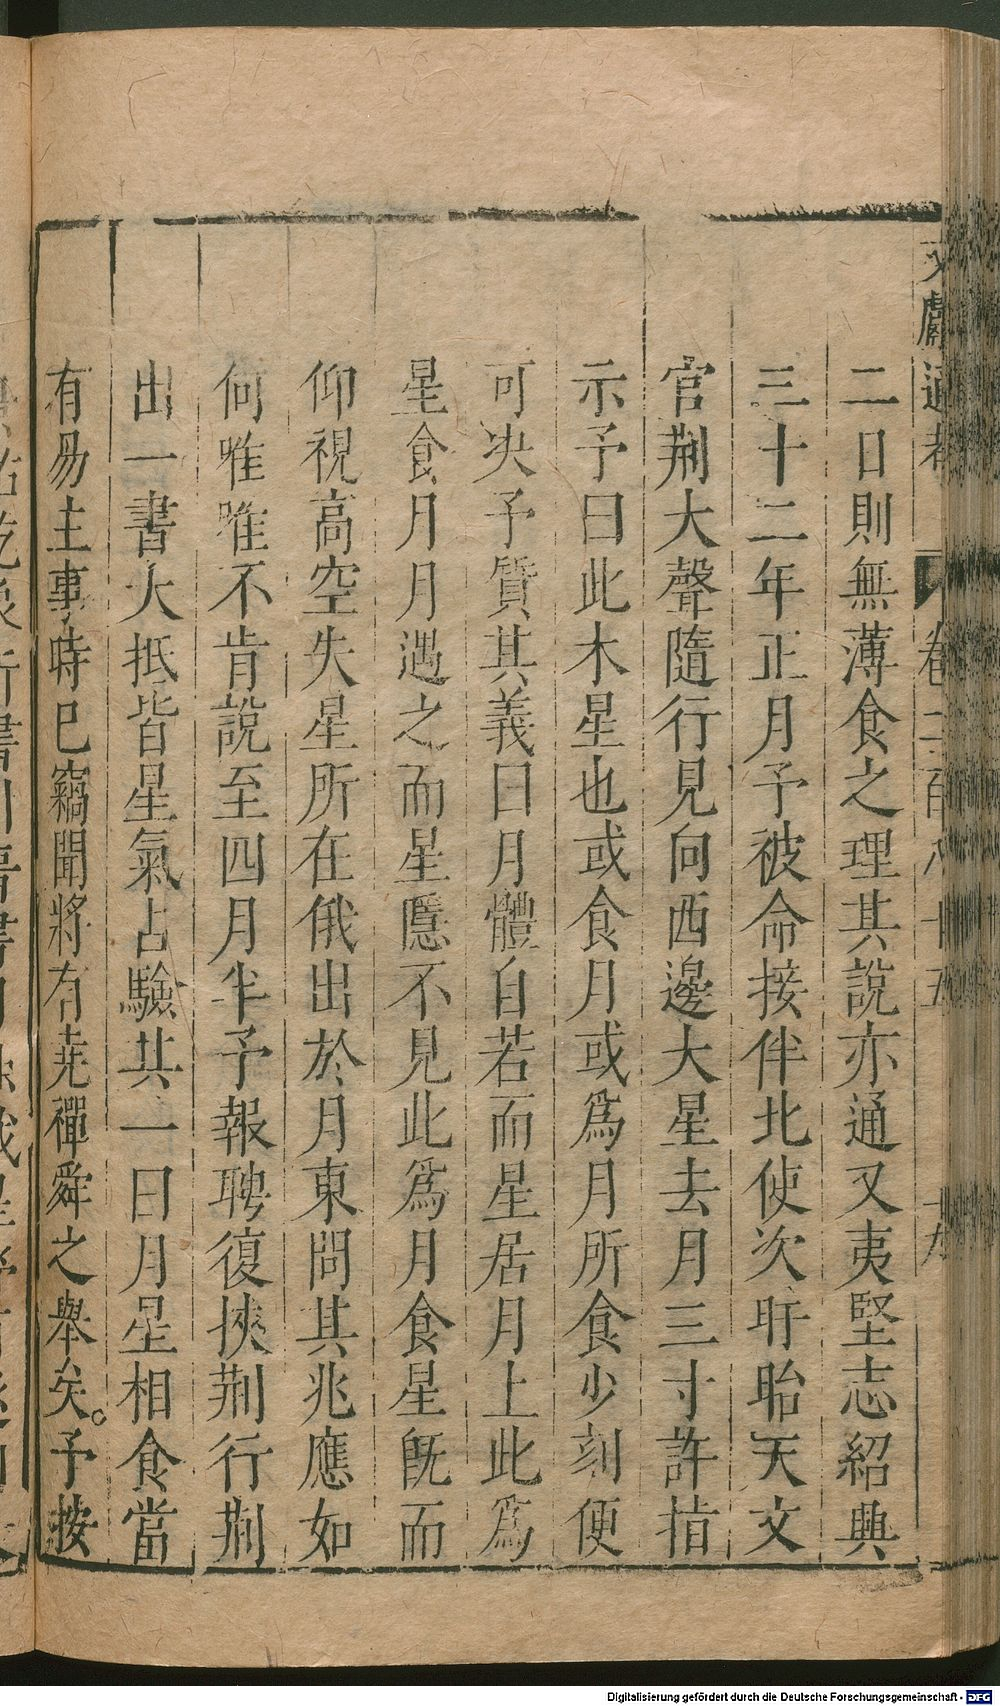 文獻通考 卷二百八十五 十九
二日則無薄食之理其說亦通又夷堅志紹興
三十二年正月予被命接伴北使次盱眙天文
官荆大聲隨行見向西邊大星去月三寸許指
示予曰此木星也或食月或爲月所食少刻便
可决予質其義曰月體自若而星居月上此爲
星食月月遇之而星隱不見此爲月食星旣而
仰視高空失星所在俄出於月東問其兆應如
何唯唯不肯說至四月半予報聘復挾荆行荆
出一書大抵皆星氣占驗其一曰月星相食當
有易主事時巳竊聞將有堯禪舜之舉矣。予按
Digitalisierung gefördert durch die Deutsche Forschungsgemeinschaft - DFG